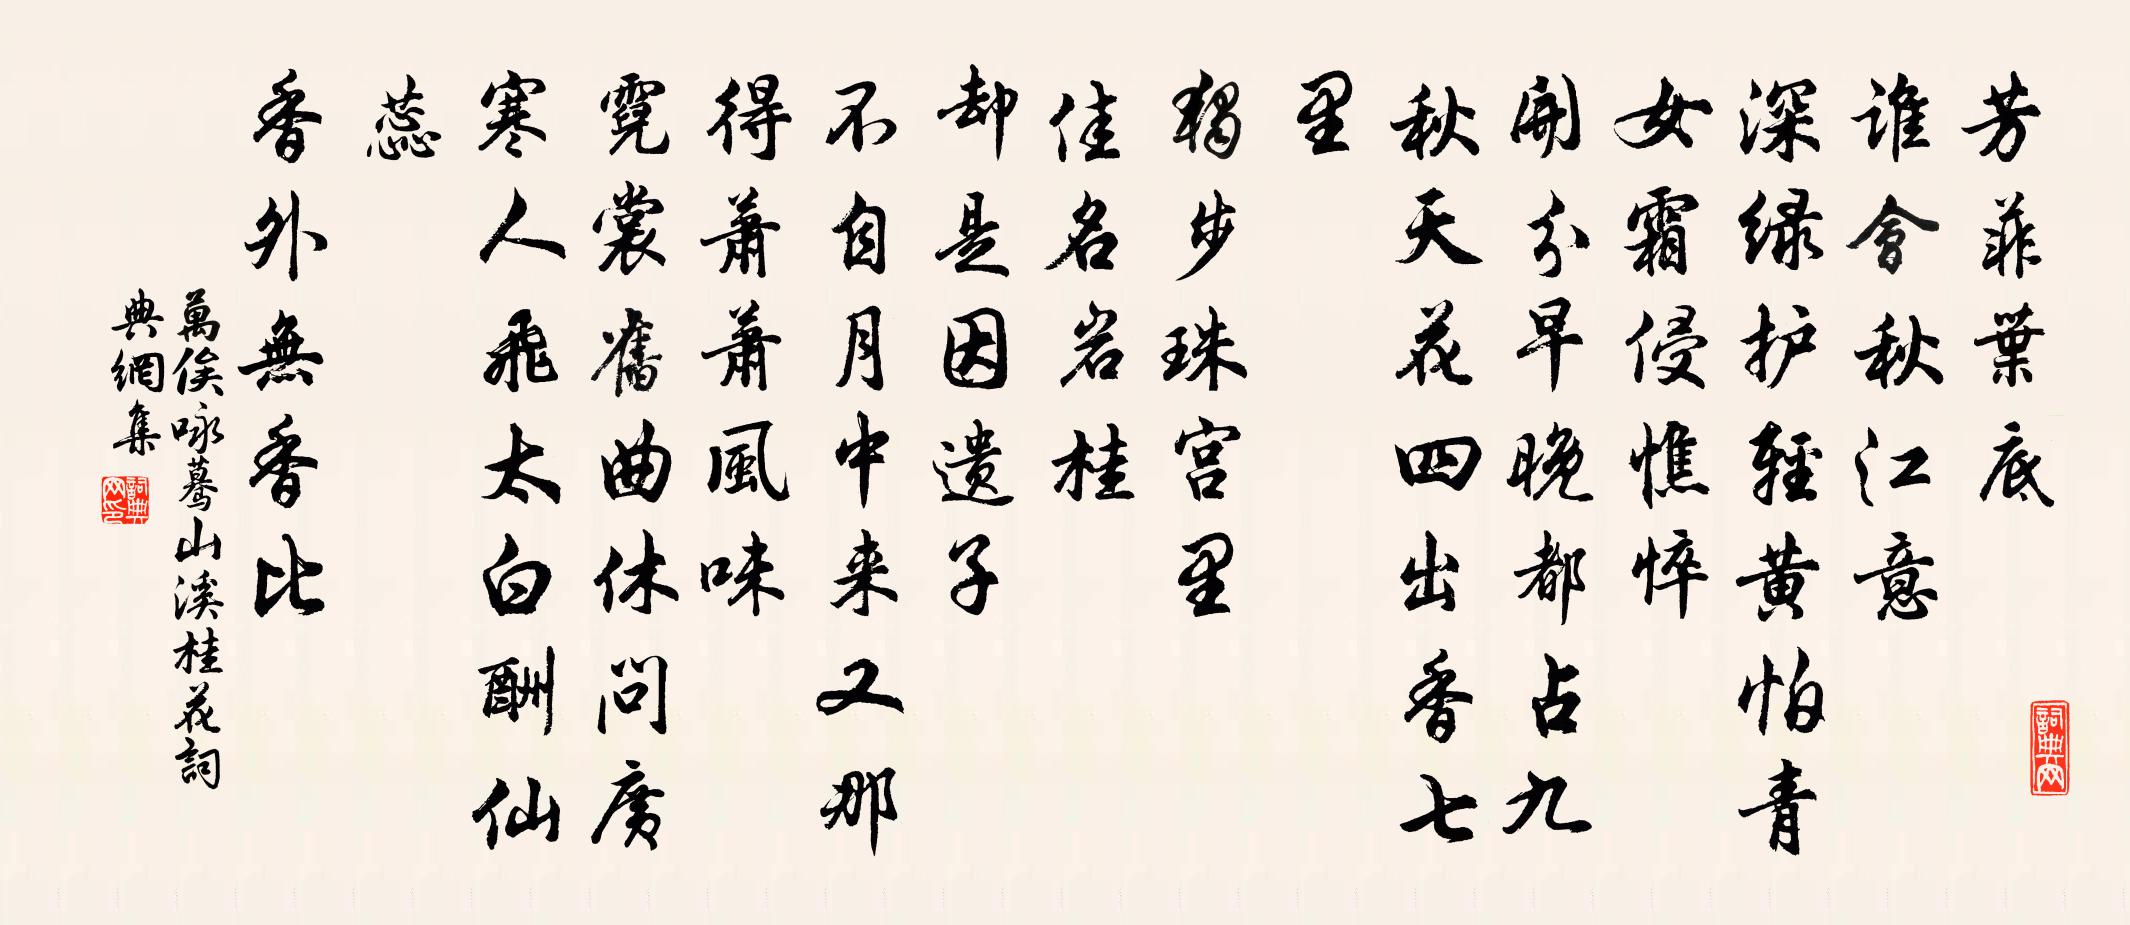 芳菲葉底
谁會秋江意
深緑护輕黄怕青
女霜侵憔悴
開分早晚都占九
秋天花四出香七
里
獨步珠宫里
佳名岩桂
却是因遗子
不自月中来又那
得萧萧風味
霓裳舊曲休问廣
寒人飛太白酬仙
蕊
香外無香比
萬俟咏蓦山溪桂花詞
典網集
詞典网
詞典网印